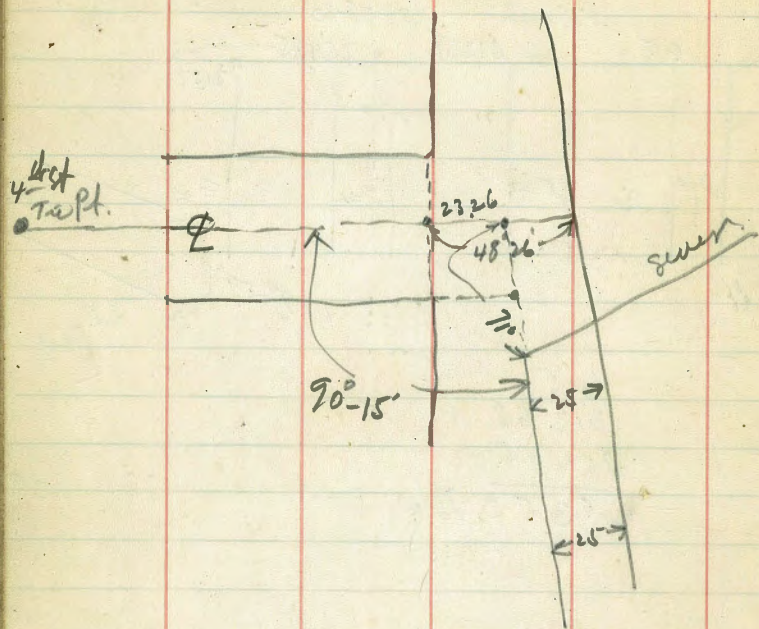 4th St
Ta Pt.
℄
23.26
48.26
sewer
90°-15'
25
25